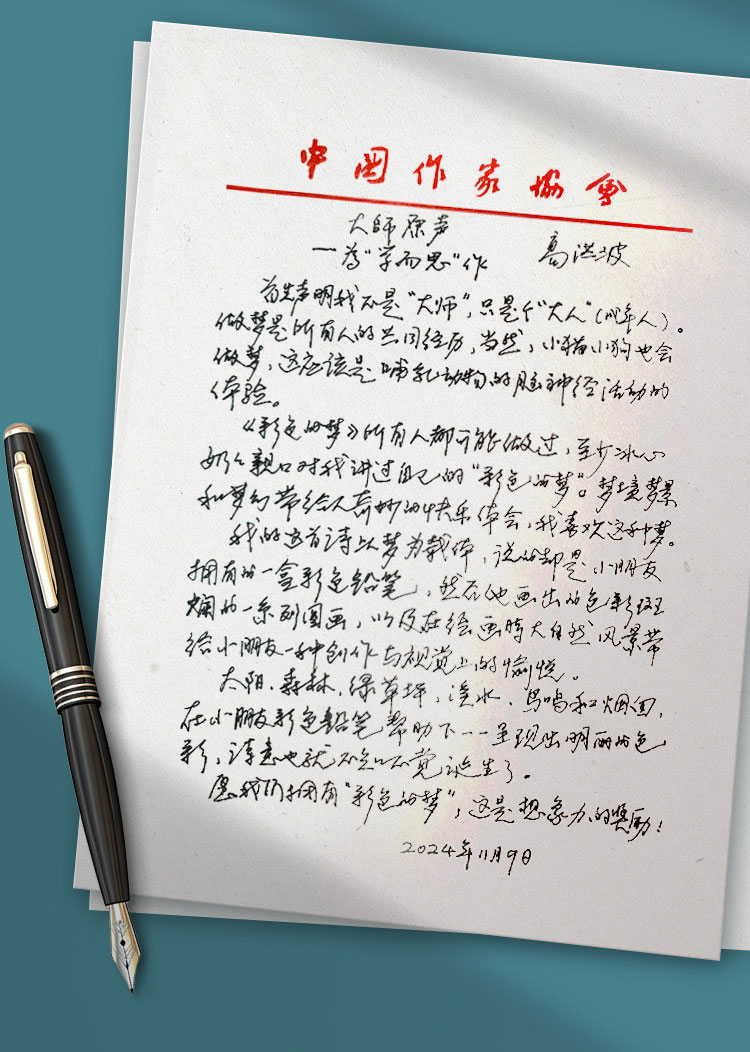 中国作家协会
大師原声
一为“学而思”作 高洪波
首先声明我不是“大师”，只是个“大人”（成年人）。
做梦是所有人的共同经历，当然，小猫小狗也会
做梦，这应该是哺乳动物的脑神经活动的
体验。
《彩色的梦》所有人都可能做过，至少冰心
奶奶亲口对我讲过自己的“彩色的梦”。梦境梦景
和梦幻带给人奇妙的快乐体会，我喜欢这种梦。
我的这首诗以梦为载体，说的却是小朋友
拥有的一盒彩色铅笔，然后他画出的色彩斑
斓的一系列图画，以及在绘画時大自然风景带
给小朋友一种创作与视觉上的愉悦。
太阳、森林、绿草坪、溪水、鸟鸣和烟囱，
在小朋友彩色铅笔帮助下一一呈现出明丽的色
彩，诗意也就不知不觉诞生了。
愿我们拥有“彩色的梦”，这是想象力的奖励！
2024年11月9日